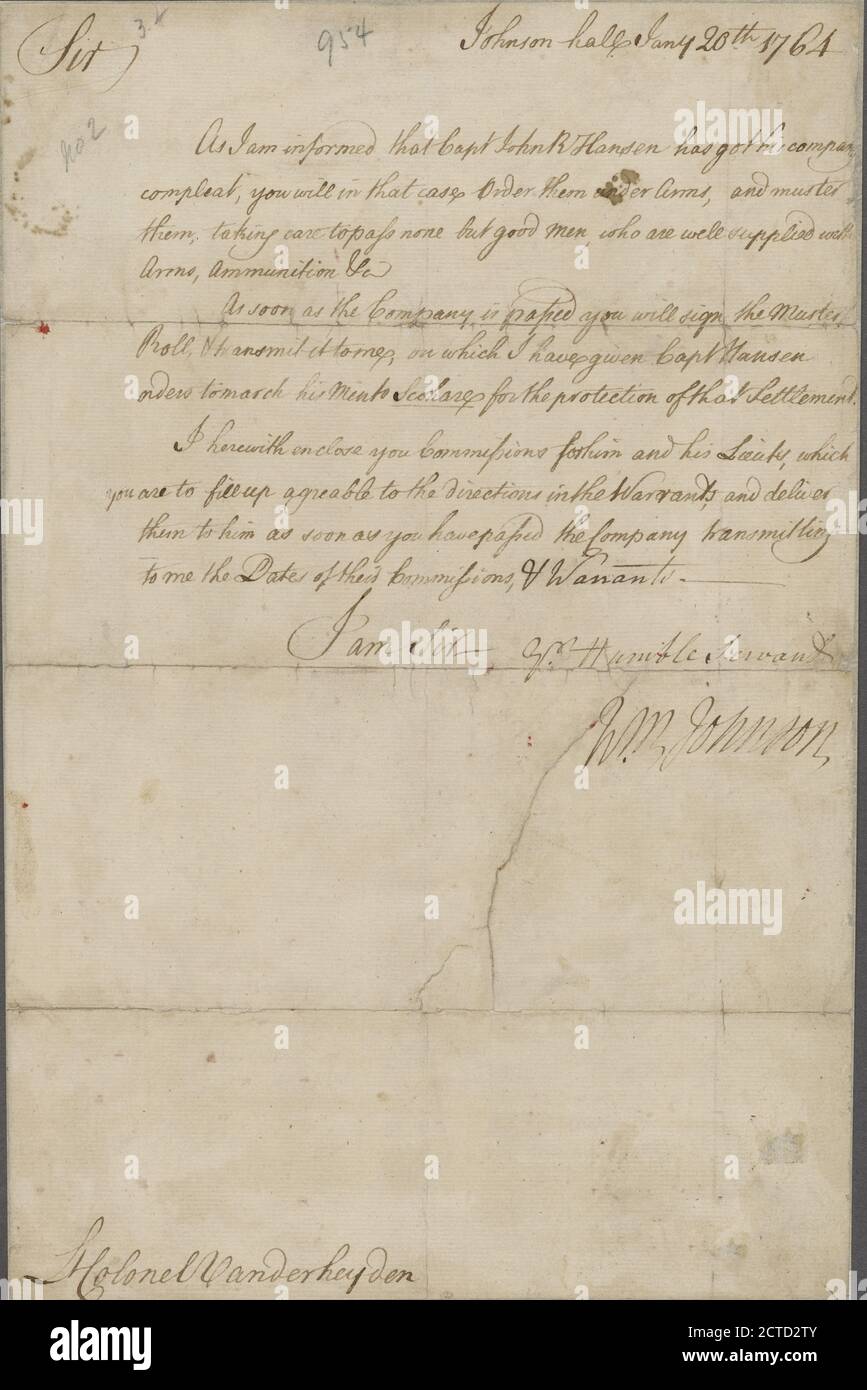 Sir
3
954
No 2
Johnson hall Jany 20th 1764
As I am informed that Capt John R Hansen has got his company
compleat, you will in that case Order them under Arms, and muster
them, taking care to pass none but good Men, who are well supplied with
Arms, Ammunition &c
As soon as the Company is passed you will sign the Muster
Roll, & transmit it to me, on which I have given Capt Hansen
orders to march his Men to Scohare for the protection of that Settlement.
I herewith enclose you Commissions for him and his Lieuts, which
you are to fill up agreable to the directions in the Warrants, and deliver
them to him as soon as you have passed the Company transmitting
to me the Dates of their Commissions, & Warrants.
I am Sir
Yr. Humble Servant
Wm Johnson
Lt Colonel Vanderheyden
alamy
Image ID: 2CTD2TY
www.alamy.com